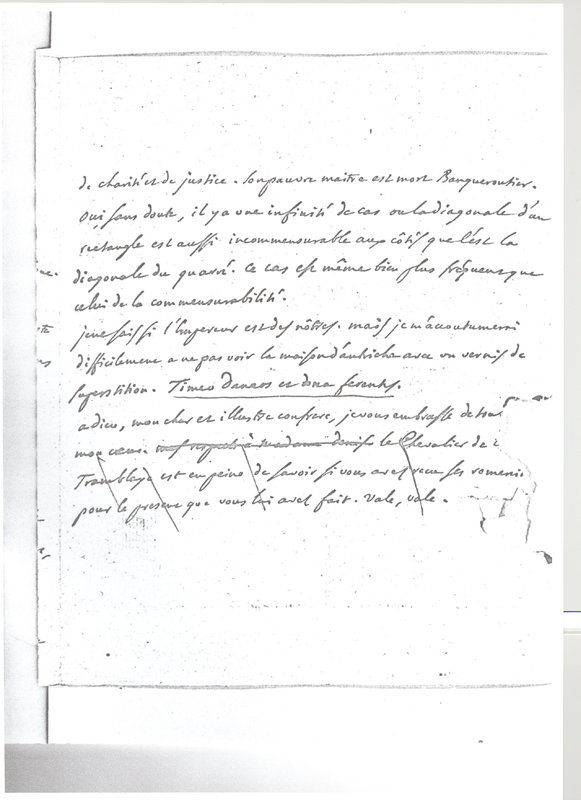 de charité et de justice. Son pauvre maitre est mort Banqueroutier.
oui sans doute, il y a une infinité de cas ou la diagonale d'un
rectangle est aussi incommensurable aux côtés que l'est la
diagonale du quarré. Ce cas est même bien plus fréquent que
celui de la commensurabilité.
je ne sais si l'Empereur est des nôtres. mais je m'accoutumerai
difficilement a ne pas voir la maison d'autriche avec un vernis de
superstition. Timeo danaos et dona ferentes.
adieu, mon cher et illustre confrere, je vous embrasse de tout
mon cœur. mes respects à madame denis le Chevalier de
Tramblaye est en peine de savoir si vous avez recu ses
pour le present que vous lui avez fait. Vale, vale.